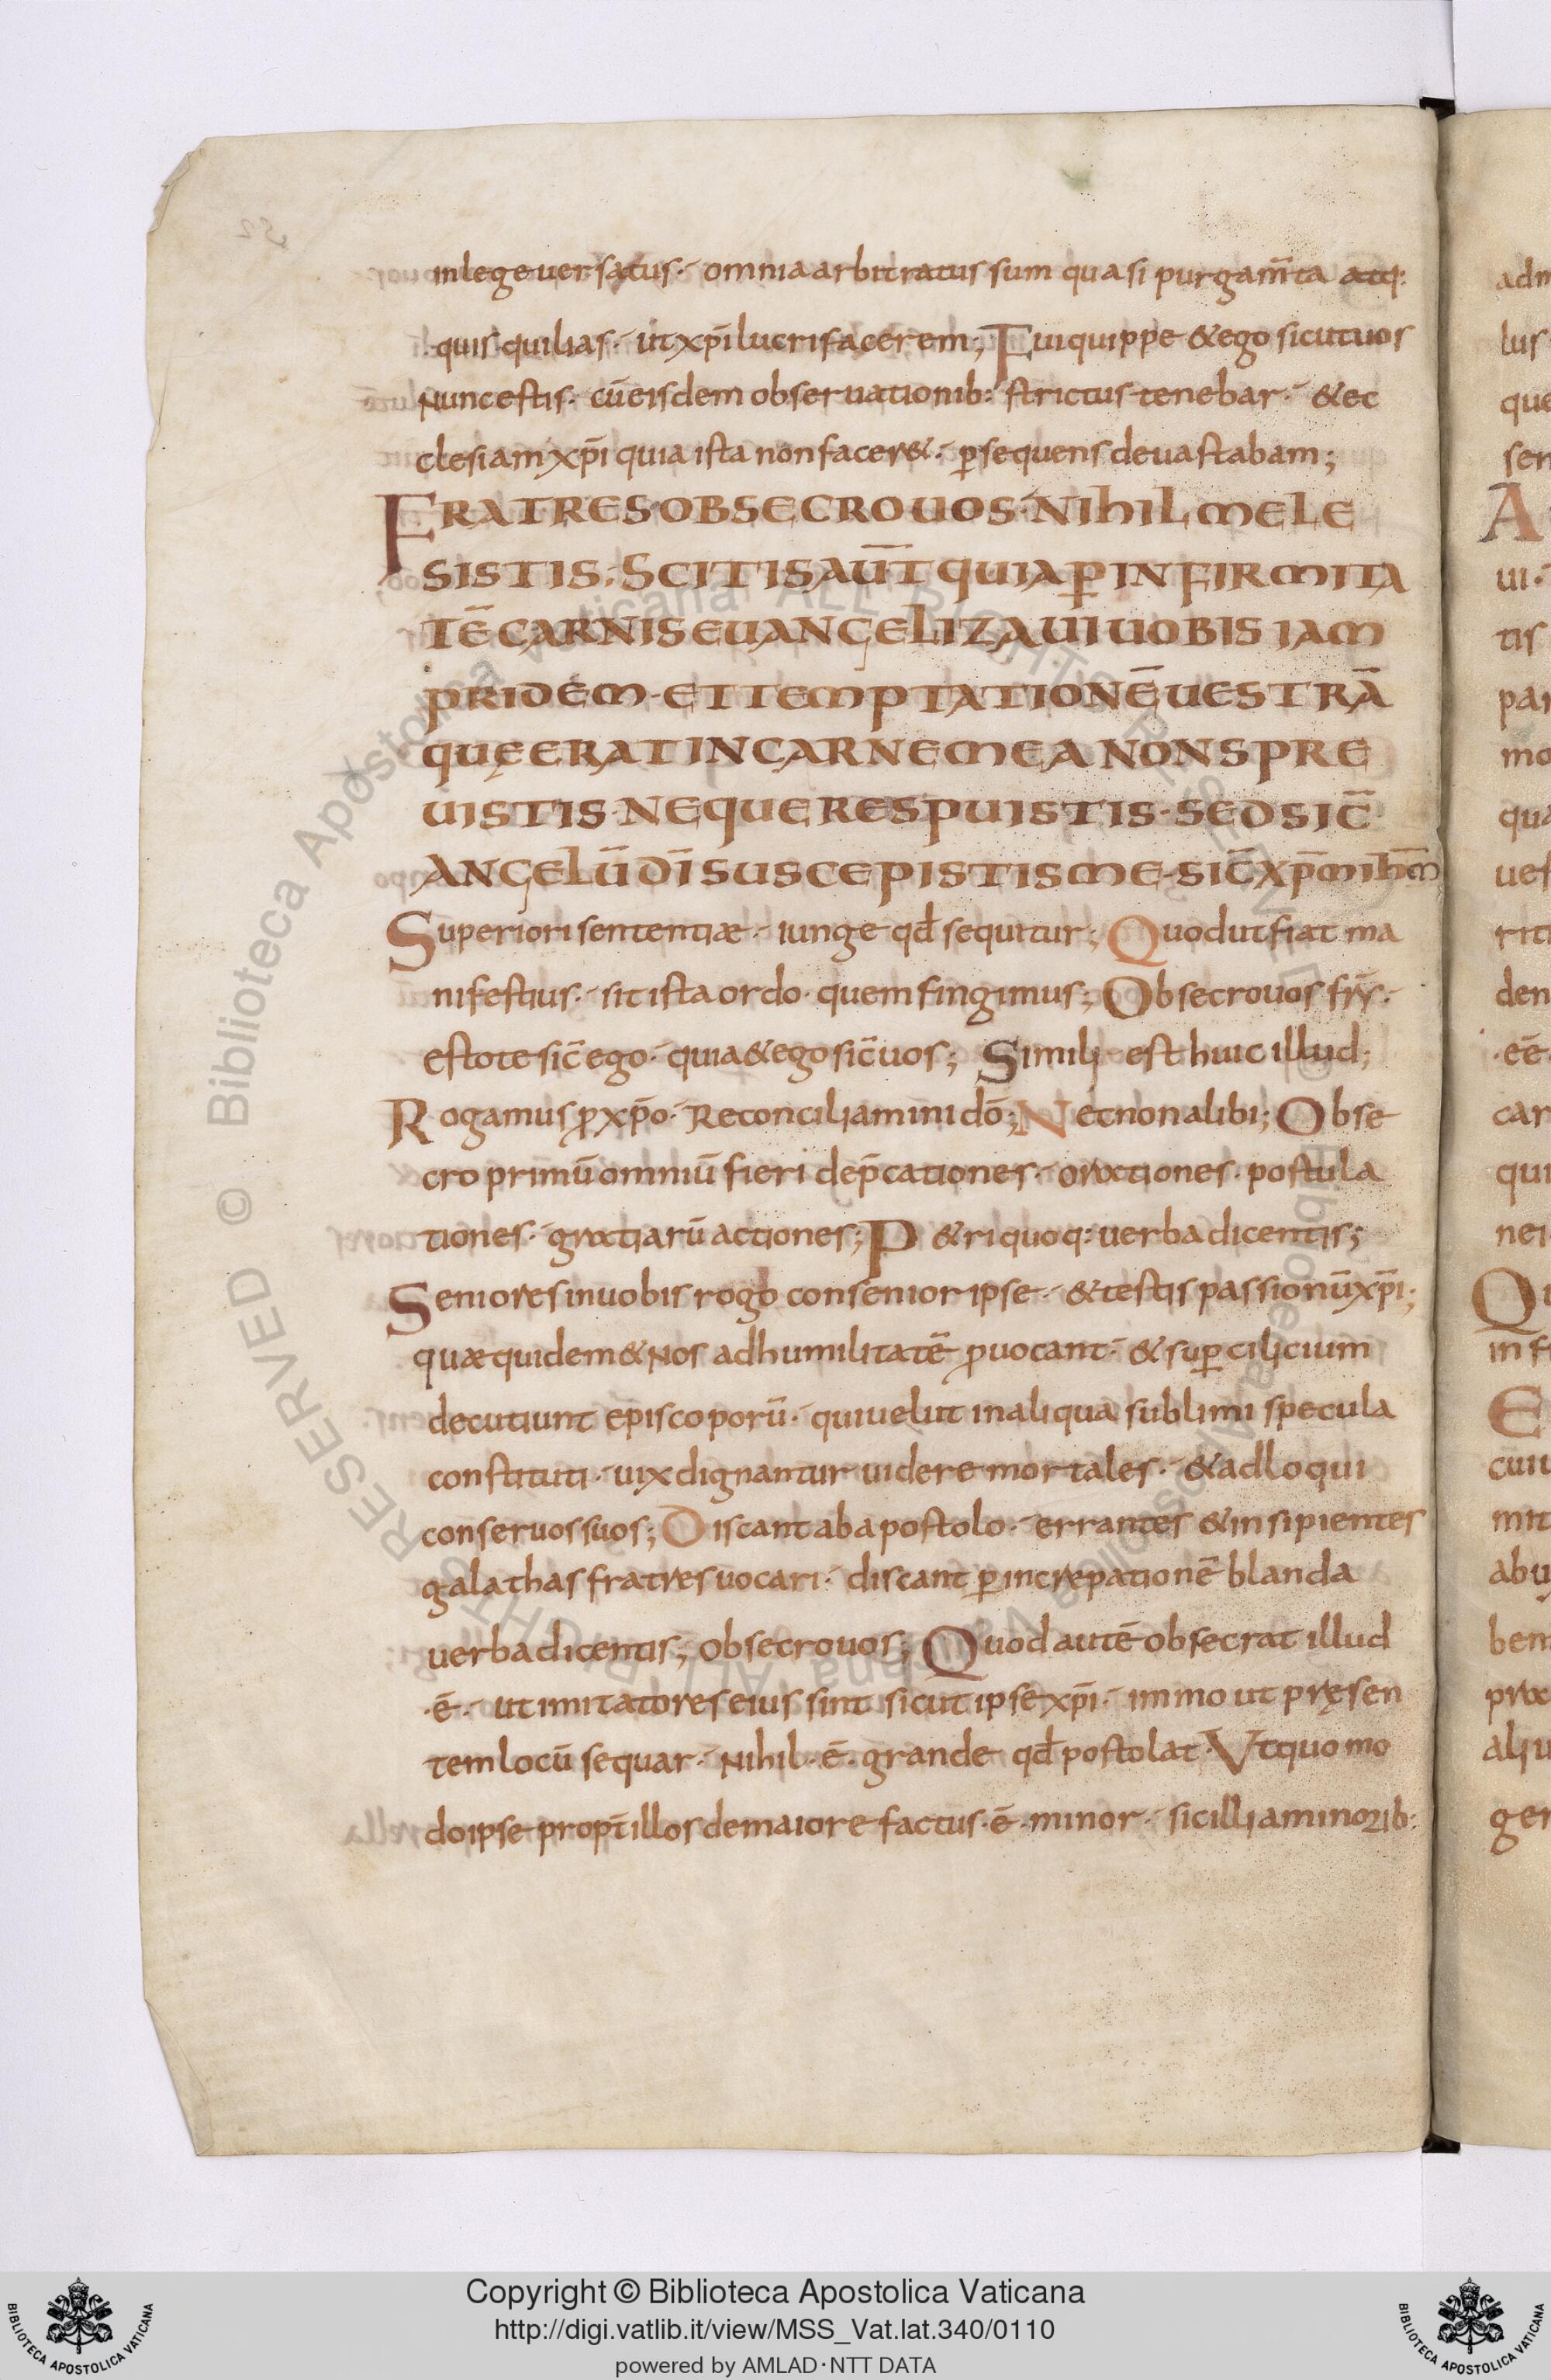 in lege uersatus· omnia arbitratus sum quasi purgam̄ta atq:
quisquilias· ut xp̄i lucrifacerem; Fui quippe & ego sicut uos
nunc estis· cū eisdem obseruationib: strictus tenebar· & ec
clesiam xp̄i quia ista non facer&· p̱sequens deuastabam;
FRATRES OBSECRO UOS· NIHIL ME LE
SISTIS; SCITIS AUT̄ QUIA P̱ INFIRMITA
TĒ CARNIS EUANGELIZAUI UOBIS IAM
PRIDEM· ET TEMPTATIONĒ UESTRĀ
QUĘ ERAT IN CARNE MEA NON SPRE
UISTIS· NEQUE RESPUISTIS· SED SIC̄
ANGELŪ DĪ SUSCEPISTIS ME· SIC̄ XP̄M IHM̄
Superiori sententiæ· iunge qđ sequitur; Quod ut fiat ma
nifestius· sit ista ordo· quem fingimus; Obsecro uos fr̄s·
estote sic̄ ego· quia & ego sic̄ uos; Simili est huic illud;
Rogamus ꝓ xp̄o· Reconciliamini dō; Necnon alibi; Obse
cro primū omniū fieri dep̄cationes· orationes· postula
tiones· gratiarū actiones; P&ri quoq: uerba dicentis;
Seniores in uobis rogo consenior ipse· & testis passionū xp̄i;
quæ quidem & nos ad humilitatē ꝓuocant· & sup̱cilicium
decutiunt episcoporū· qui uelut in aliqua sublimi specula
constituti· uix dignantur uidere mortales· & adloqui
conseruos suos; Discant ab apostolo· errantes & insipientes
galathas fratres uocari· discant p̱ increpationē blanda
uerba dicentis; obsecro uos; Quod autē obsecrat illud
·ē· ut imitatores eius sint sicut ipse xp̄i· immo ut pręsen
tem locū sequar· nihil ·ē· grande qđ postolat· Vt quomo
do ipse propt̄ illos de maiore factus ·ē· minor· sic illi a minorib:
Copyright © Biblioteca Apostolica Vaticana
http://digi.vatlib.it/view/MSS_Vat.lat.340/0110
powered by AMLAD·NTT DATA